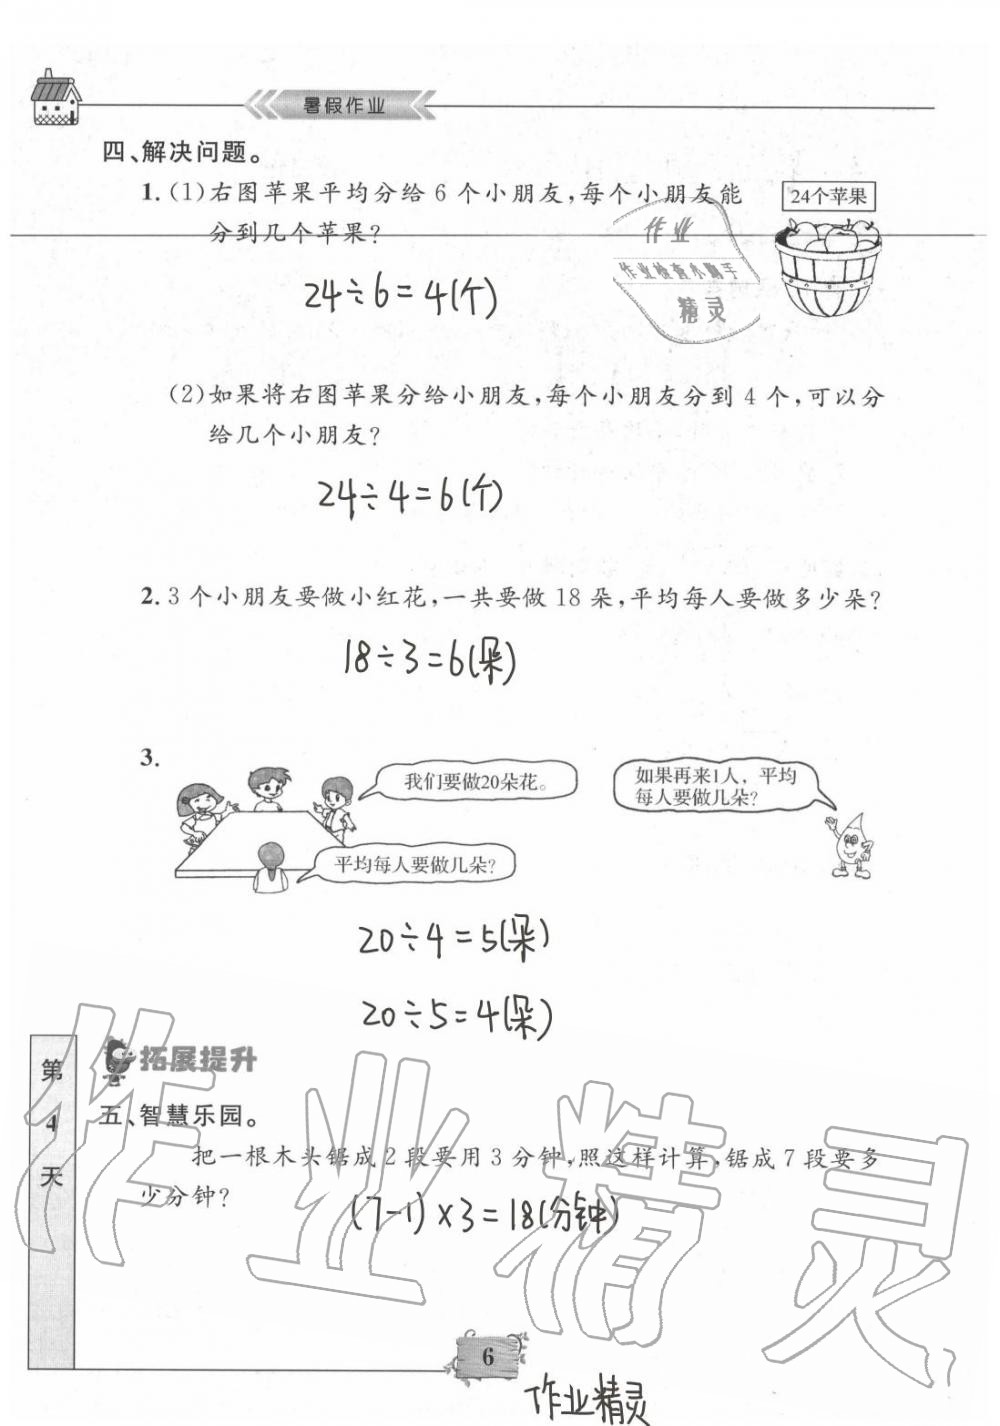 暑假作业
四、解决问题。
1.(1)右图苹果平均分给 6 个小朋友,每个小朋友能
分到几个苹果?
24个苹果
作业
作业检查小助手
精灵
24÷6=4(个)
(2)如果将右图苹果分给小朋友,每个小朋友分到 4 个,可以分
给几个小朋友?
24÷4=6(个)
2. 3 个小朋友要做小红花,一共要做 18 朵,平均每人要做多少朵?
18÷3=6(朵)
3.
我们要做20朵花。
如果再来1人，平均
每人要做几朵?
平均每人要做几朵?
20÷4=5(朵)
20÷5=4(朵)
拓展提升
五、智慧乐园。
把一根木头锯成 2 段要用 3 分钟,照这样计算,锯成 7 段要多
少分钟?
(7-1)×3=18(分钟)
第
4
天
作业精灵
6
作业精灵